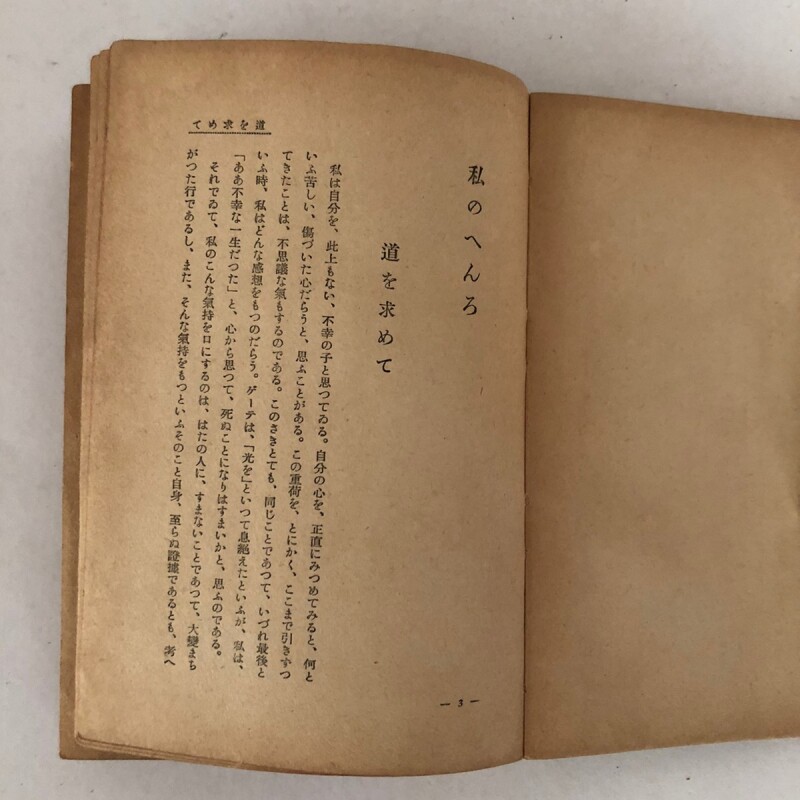 道を求めて
私のへんろ
道を求めて
私は自分を、此上もない、不幸の子と思つてゐる。自分の心を、正直にみつめてみると、何と
いふ苦しい、傷づいた心だらうと、思ふことがある。この重荷を、とにかく、ここまで引きずつ
てきたことは、不思議な氣もするのである。このさきとても、同じことであつて、いづれ最後と
いふ時、私はどんな感想をもつのだらう。ゲーテは、「光を」といつて息絕えたといふが、私は、
「ああ不幸な一生だつた」と、心から思つて、死ぬことになりはすまいかと、思ふのである。
それでゐて、私のこんな氣持を口にするのは、はたの人に、すまないことであつて、大變まち
がつた行であるし、また、そんな氣持をもつといふそのこと自身、至らぬ證據であるとも、考へ
— 3 —